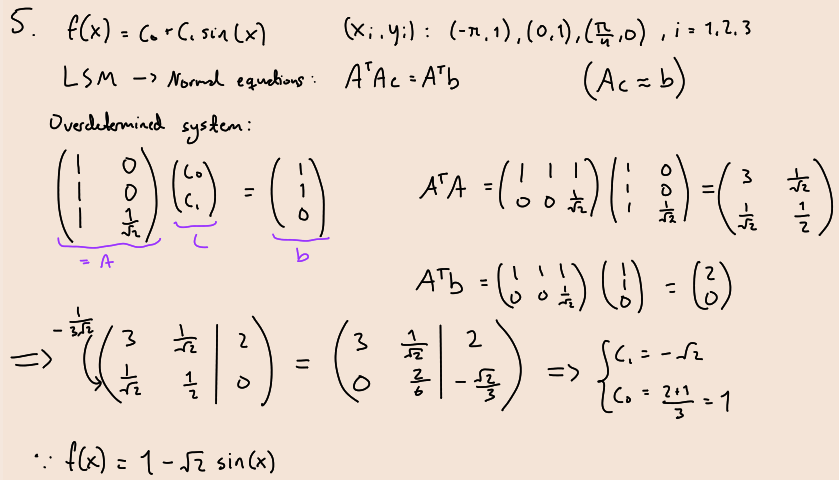 5. f(x) = C₀ + C₁ sin(x) (xᵢ, yᵢ) : (-π, 1), (0, 1), (π/4, 0) , i = 1, 2, 3
LSM → Normal equations: AᵀAc = Aᵀb (Ac ≈ b)
Overdetermined system:
(1 0; 1 0; 1 1/√2) (C₀; C₁) = (1; 1; 0)
= A c b
AᵀA = (1 1 1; 0 0 1/√2) (1 0; 1 0; 1 1/√2) = (3 1/√2; 1/√2 1/2)
Aᵀb = (1 1 1; 0 0 1/√2) (1; 1; 0) = (2; 0)
=> -1/(3√2) (3 1/√2 | 2; 1/√2 1/2 | 0) = (3 1/√2 | 2; 0 2/6 | -√2/3) => { C₁ = -√2; C₀ = (2+1)/3 = 1
∵ f(x) = 1 - √2 sin(x)